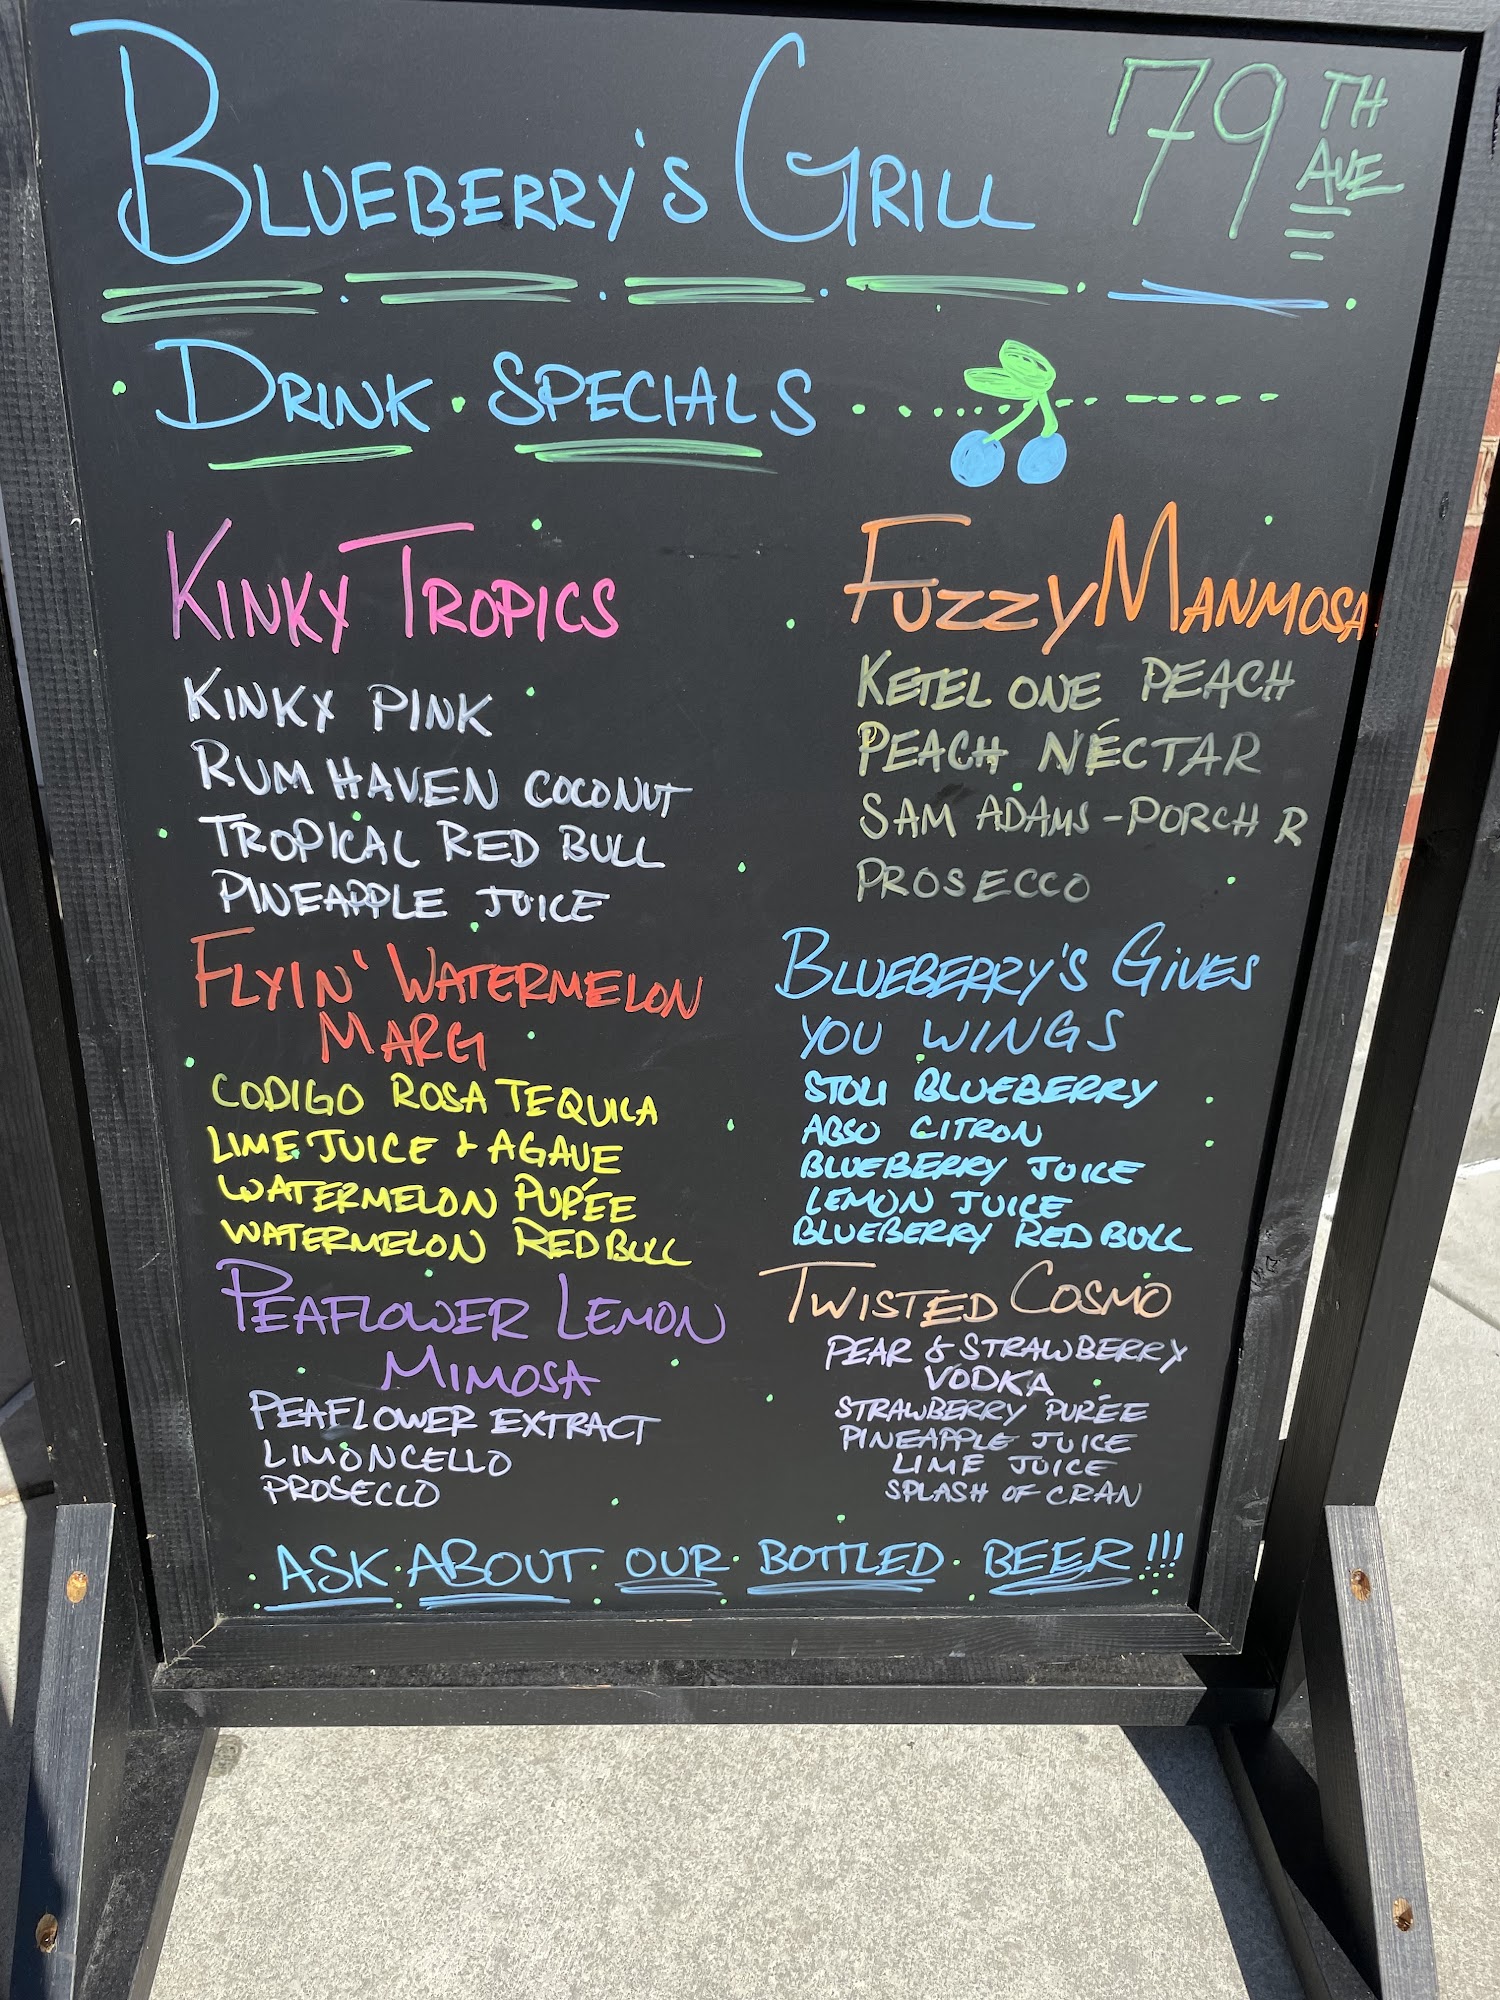 BLUEBERRY'S GRILL 79TH AVE
DRINK SPECIALS
KINKY TROPICS
KINKY PINK
RUM HAVEN COCONUT
TROPICAL RED BULL
PINEAPPLE JUICE
FLYIN' WATERMELON
MARG
CODIGO ROSA TEQUILA
LIME JUICE & AGAVE
WATERMELON PURÉE
WATERMELON RED BULL
PEAFLOWER LEMON
MIMOSA
PEAFLOWER EXTRACT
LIMONCELLO
PROSECCO
FUZZY MANMOSA
KETEL ONE PEACH
PEACH NECTAR
SAM ADAMS - PORCH R
PROSECCO
BLUEBERRY'S GIVES
YOU WINGS
STOLI BLUEBERRY
ABSO CITRON
BLUEBERRY JUICE
LEMON JUICE
BLUEBERRY RED BULL
TWISTED COSMO
PEAR & STRAWBERRY
VODKA
STRAWBERRY PURÉE
PINEAPPLE JUICE
LIME JUICE
SPLASH OF CRAN
ASK ABOUT OUR BOTTLED BEER!!!